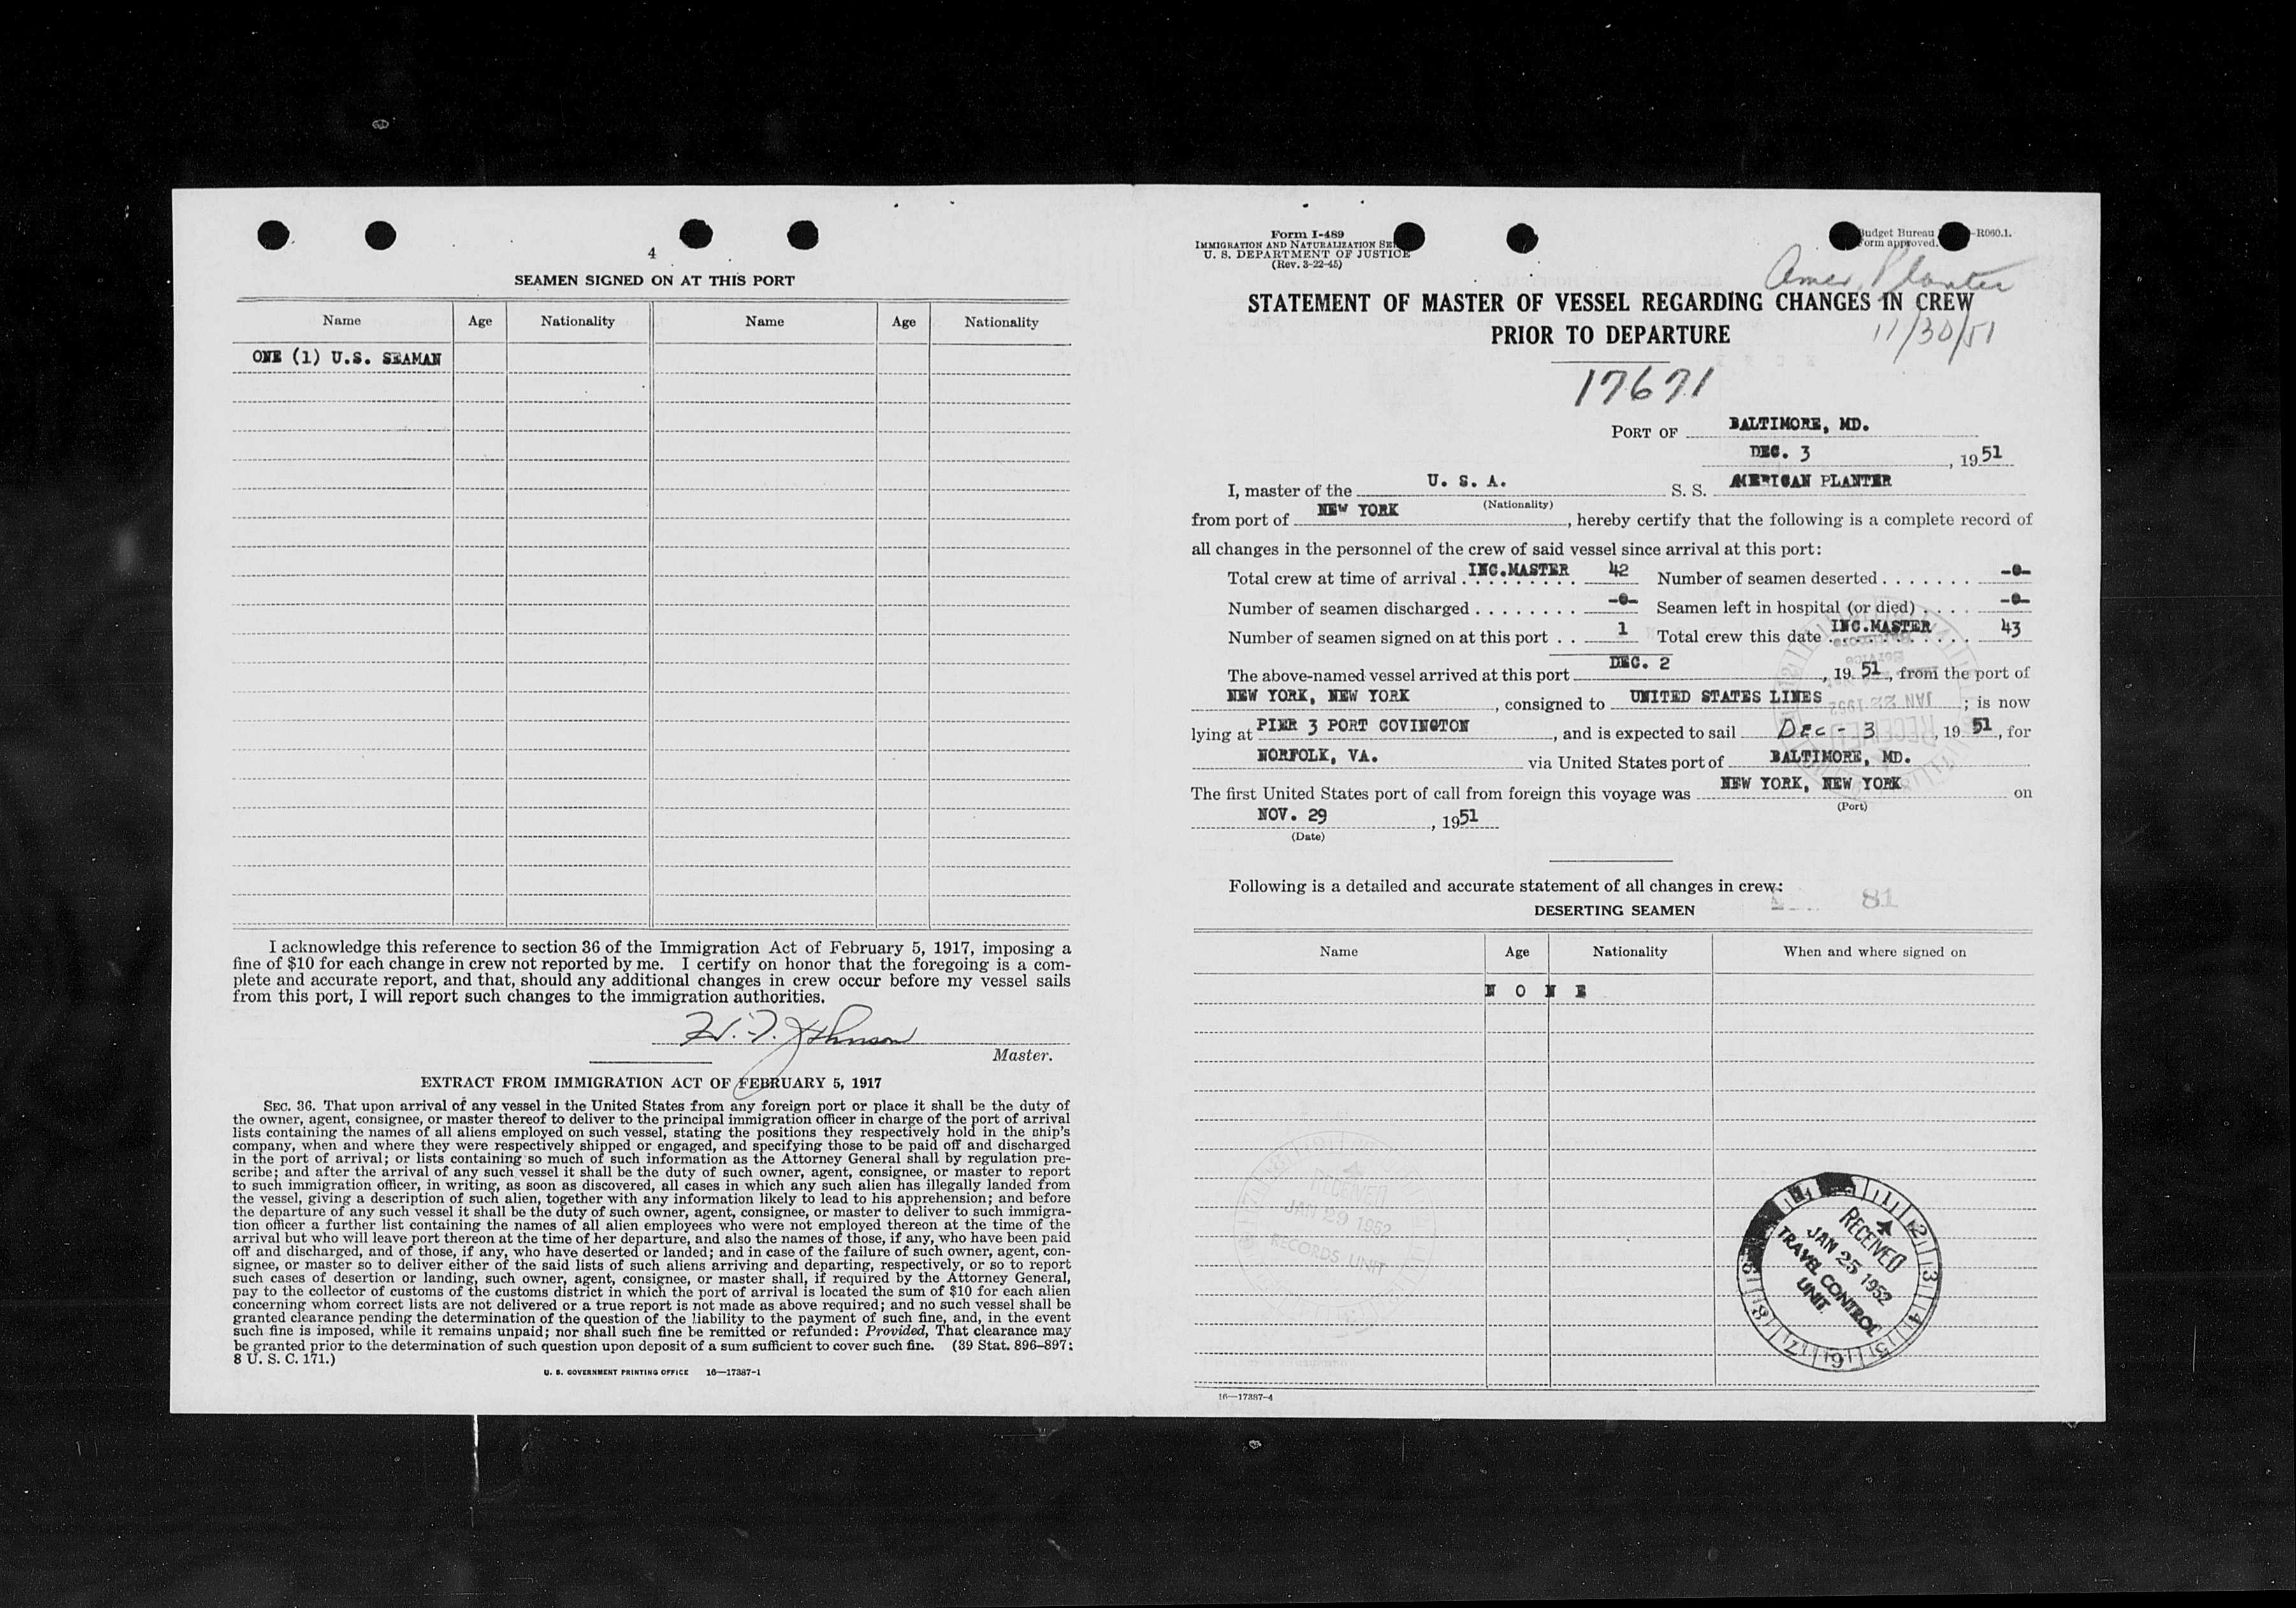 4
SEAMEN SIGNED ON AT THIS PORT
Name Age Nationality Name Age Nationality
ONE (1) U.S. SEAMAN
I acknowledge this reference to section 36 of the Immigration Act of February 5, 1917, imposing a
fine of $10 for each change in crew not reported by me. I certify on honor that the foregoing is a com-
plete and accurate report, and that, should any additional changes in crew occur before my vessel sails
from this port, I will report such changes to the immigration authorities.
Johnson
Master.
EXTRACT FROM IMMIGRATION ACT OF FEBRUARY 5, 1917
SEC. 36. That upon arrival of any vessel in the United States from any foreign port or place it shall be the duty of
the owner, agent, consignee, or master thereof to deliver to the principal immigration officer in charge of the port of arrival
lists containing the names of all aliens employed on such vessel, stating the positions they respectively hold in the ship's
company, when and where they were respectively shipped or engaged, and specifying those to be paid off and discharged
in the port of arrival; or lists containing so much of such information as the Attorney General shall by regulation pre-
scribe; and after the arrival of any such vessel it shall be the duty of such owner, agent, consignee, or master to report
to such immigration officer, in writing, as soon as discovered, all cases in which any such alien has illegally landed from
the vessel, giving a description of such alien, together with any information likely to lead to his apprehension; and before
the departure of any such vessel it shall be the duty of such owner, agent, consignee, or master to deliver to such immigra-
tion officer a further list containing the names of all alien employees who were not employed thereon at the time of the
arrival but who will leave port thereon at the time of her departure, and also the names of those, if any, who have been paid
off and discharged, and of those, if any, who have deserted or landed; and in case of the failure of such owner, agent, con-
signee, or master so to deliver either of the said lists of such aliens arriving and departing, respectively, or so to report
such cases of desertion or landing, such owner, agent, consignee, or master shall, if required by the Attorney General,
pay to the collector of customs of the customs district in which the port of arrival is located the sum of $10 for each alien
concerning whom correct lists are not delivered or a true report is not made as above required; and no such vessel shall be
granted clearance pending the determination of the question of the liability to the payment of such fine, and, in the event
such fine is imposed, while it remains unpaid; nor shall such fine be remitted or refunded: Provided, That clearance may
be granted prior to the determination of such question upon deposit of a sum sufficient to cover such fine. (39 Stat. 896–897;
8 U. S. C. 171.)
U. S. GOVERNMENT PRINTING OFFICE 16—17387-1
Form I-489
IMMIGRATION AND NATURALIZATION SE
U. S. DEPARTMENT OF JUSTICE
(Rev. 3-22-45)
Budget Bureau -R060.1.
Form approved.
Amer. Planter
11/30/51
STATEMENT OF MASTER OF VESSEL REGARDING CHANGES IN CREW
PRIOR TO DEPARTURE
17671
PORT OF BALTIMORE, MD.
DEC. 3, 1951
I, master of the U. S. A. S. S. AMERICAN PLANTER
(Nationality)
from port of NEW YORK, hereby certify that the following is a complete record of
all changes in the personnel of the crew of said vessel since arrival at this port:
Total crew at time of arrival INC.MASTER 42 Number of seamen deserted -0-
Number of seamen discharged -0- Seamen left in hospital (or died) -0-
Number of seamen signed on at this port 1 Total crew this date INC.MASTER 43
The above-named vessel arrived at this port DEC. 2, 1951, from the port of
NEW YORK, NEW YORK, consigned to UNITED STATES LINES; is now
lying at PIER 3 PORT COVINGTON, and is expected to sail Dec - 3, 1951, for
NORFOLK, VA. via United States port of BALTIMORE, MD.
The first United States port of call from foreign this voyage was NEW YORK, NEW YORK on
(Port)
NOV. 29, 1951
(Date)
Following is a detailed and accurate statement of all changes in crew:
81
DESERTING SEAMEN
Name Age Nationality When and where signed on
N O N E
RECEIVED
JAN 29 1952
RECORDS UNIT
RECEIVED
JAN 25 1952
TRAVEL CONTROL
UNIT
16—17387-4